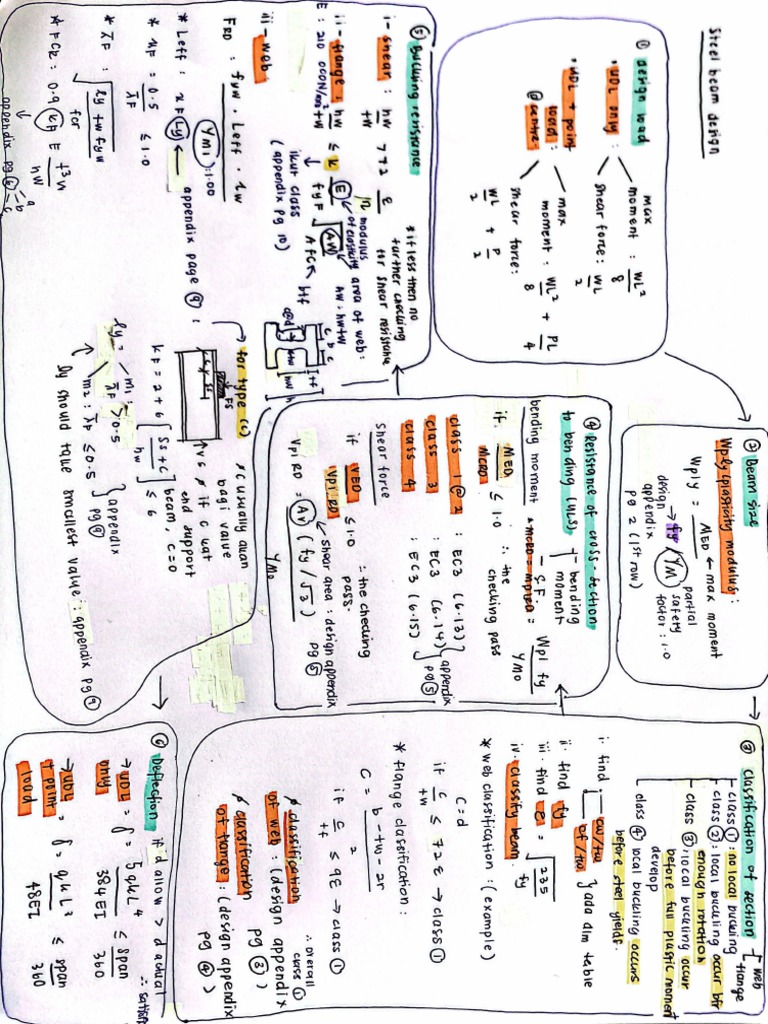 Steel beam design
① Design load
• UDL only :
max moment : WL²/8
shear force : WL/2
• UDL + point load @ centre :
max moment : WL²/8 + PL/4
shear force : WL/2 + P/2
② Beam size
Wply (plasticity modulus) :
Wply = MED ← max moment
fy / γM
design appendix pg 2 (1st row)
partial safety factor : 1.0
③ Classification of section
web
flange
class ① : no local buckling
class ② : local buckling occur bt enough rotation
class ③ : local buckling occur before full plastic moment develop
class ④ local buckling occurs before steel yields.
i. find cw/tw
cf/tw } ada dlm table
ii. find fy
iii. find ε = √235/fy
iv. classify beam.
* web classification : (example)
c = d
if c/tw ≤ 72ε → class ①
* flange classification :
c = b - tw - 2r / 2
if c/tf ≤ 9ε → class ①
∴ overall class ①
# classification of web : (design appendix pg ③)
# classification of flange : (design appendix pg ④)
④ Resistance of cross-section to bending (ULS)
- bending moment
- S.F.
bending moment * MCRD = MPLRD = Wpl fy / γMO
if MED / MCRD ≤ 1.0 ∴ the checking pass
class 1 @ 2 : EC3 (6.13)
class 3 : EC3 (6.14)
class 4 : EC3 (6.15)
} appendix pg ⑤
shear force
if VED / VPLRD ≤ 1.0 ∴ the checking pass.
shear area : design appendix pg ⑤
VPLRD = Av (fy/√3) / γMO
⑤ Buckling resistance
* if less then no further checking for shear resistance
i- shear : hw/tw > 72 ε/
ii- flange : hw/tw ≤ k E/fyF √Aw/Afc
E : 210 000N/mm²
modulus of elasticity
area of web : hw . tw
ikut class (appendix pg 10)
iii- web
FRD : fyw . Leff . tw / γM1 : 1.00
* Leff : xF ly ← appendix page ⑨ :
* xF = 0.5 / λ̄F ≤ 1.0
* λ̄F : √ly tw fyw / Fcr
* FCR = 0.9 kF E t³w / hw
for type (c)
FS
Vs
c usually akan bagi value
# if c xat beam, c=0
end support
kF = 2 + 6 [Ss + c / hw] ≤ 6
ly = m1 : λ̄F > 0.5
m2 : λ̄F ≤ 0.5
} appendix pg ⑨
ly should take smallest value : appendix pg ⑨
⑥ Deflection if d allow > d actual
→ UDL only = δ = 5qUL⁴ / 384EI ≤ span / 360
→ UDL + point load = δ = qUL³ / 48EI ≤ span / 360